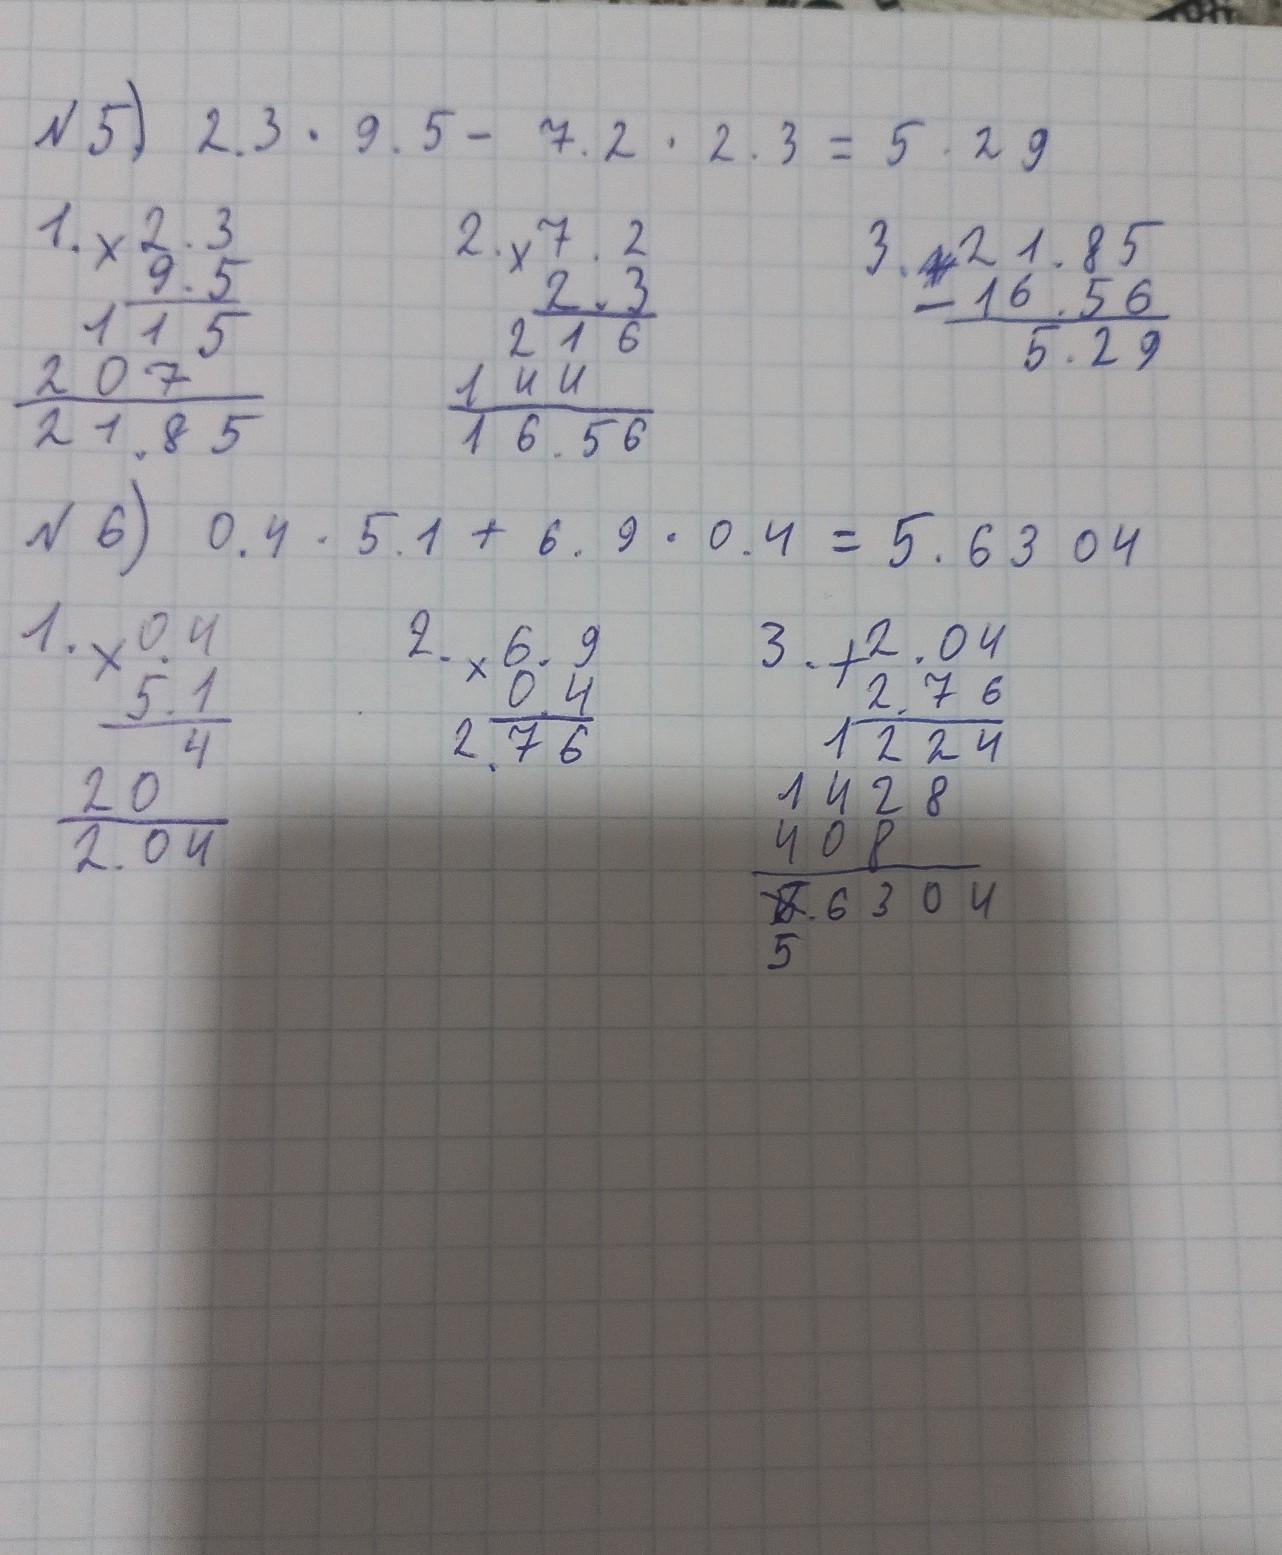 № 5) 2.3 · 9.5 - 7.2 · 2.3 = 5.29
1. × 2.3 2. × 7.2 3. - 21.85
9.5 2.3 16.56
115 216 5.29
207 144
21.85 16.56
№ 6) 0.4 · 5.1 + 6.9 · 0.4 = 5.6304
1. × 0.4 2. × 6.9 3. + 2.04
5.1 0.4 2.76
4 2.76 1224
20 1428
2.04 408
.6304
5